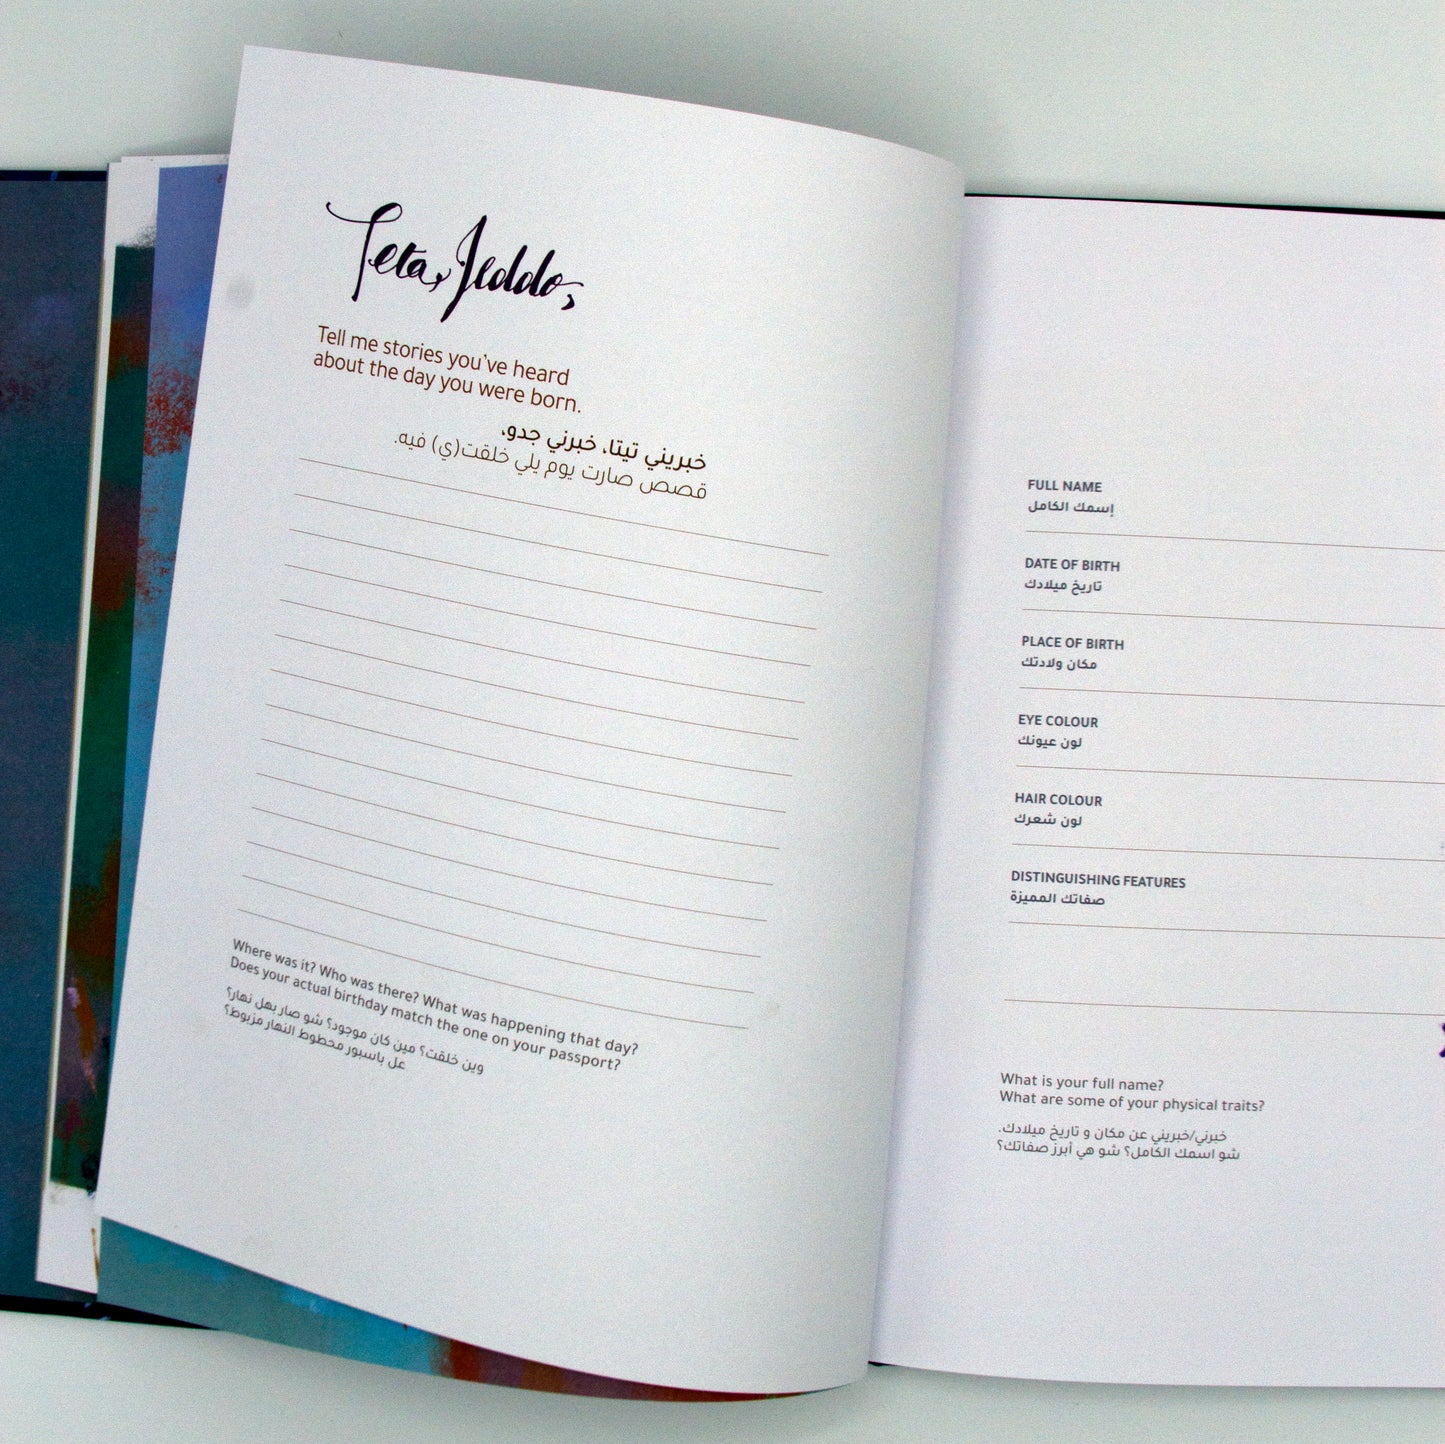 Teta, Jeddo,
Tell me stories you've heard
about the day you were born.
خبريني تيتا، خبرني جدو،
قصص صارت يوم يلي خلقت(ي) فيه.
Where was it? Who was there? What was happening that day?
Does your actual birthday match the one on your passport?
وين خلقت؟ مين كان موجود؟ شو صار بهل نهار؟
عل باسبور محطوط النهار مزبوط؟
FULL NAME
إسمك الكامل
DATE OF BIRTH
تاريخ ميلادك
PLACE OF BIRTH
مكان ولادتك
EYE COLOUR
لون عيونك
HAIR COLOUR
لون شعرك
DISTINGUISHING FEATURES
صفاتك المميزة
What is your full name?
What are some of your physical traits?
خبرني/خبريني عن مكان و تاريخ ميلادك.
شو اسمك الكامل؟ شو هي أبرز صفاتك؟